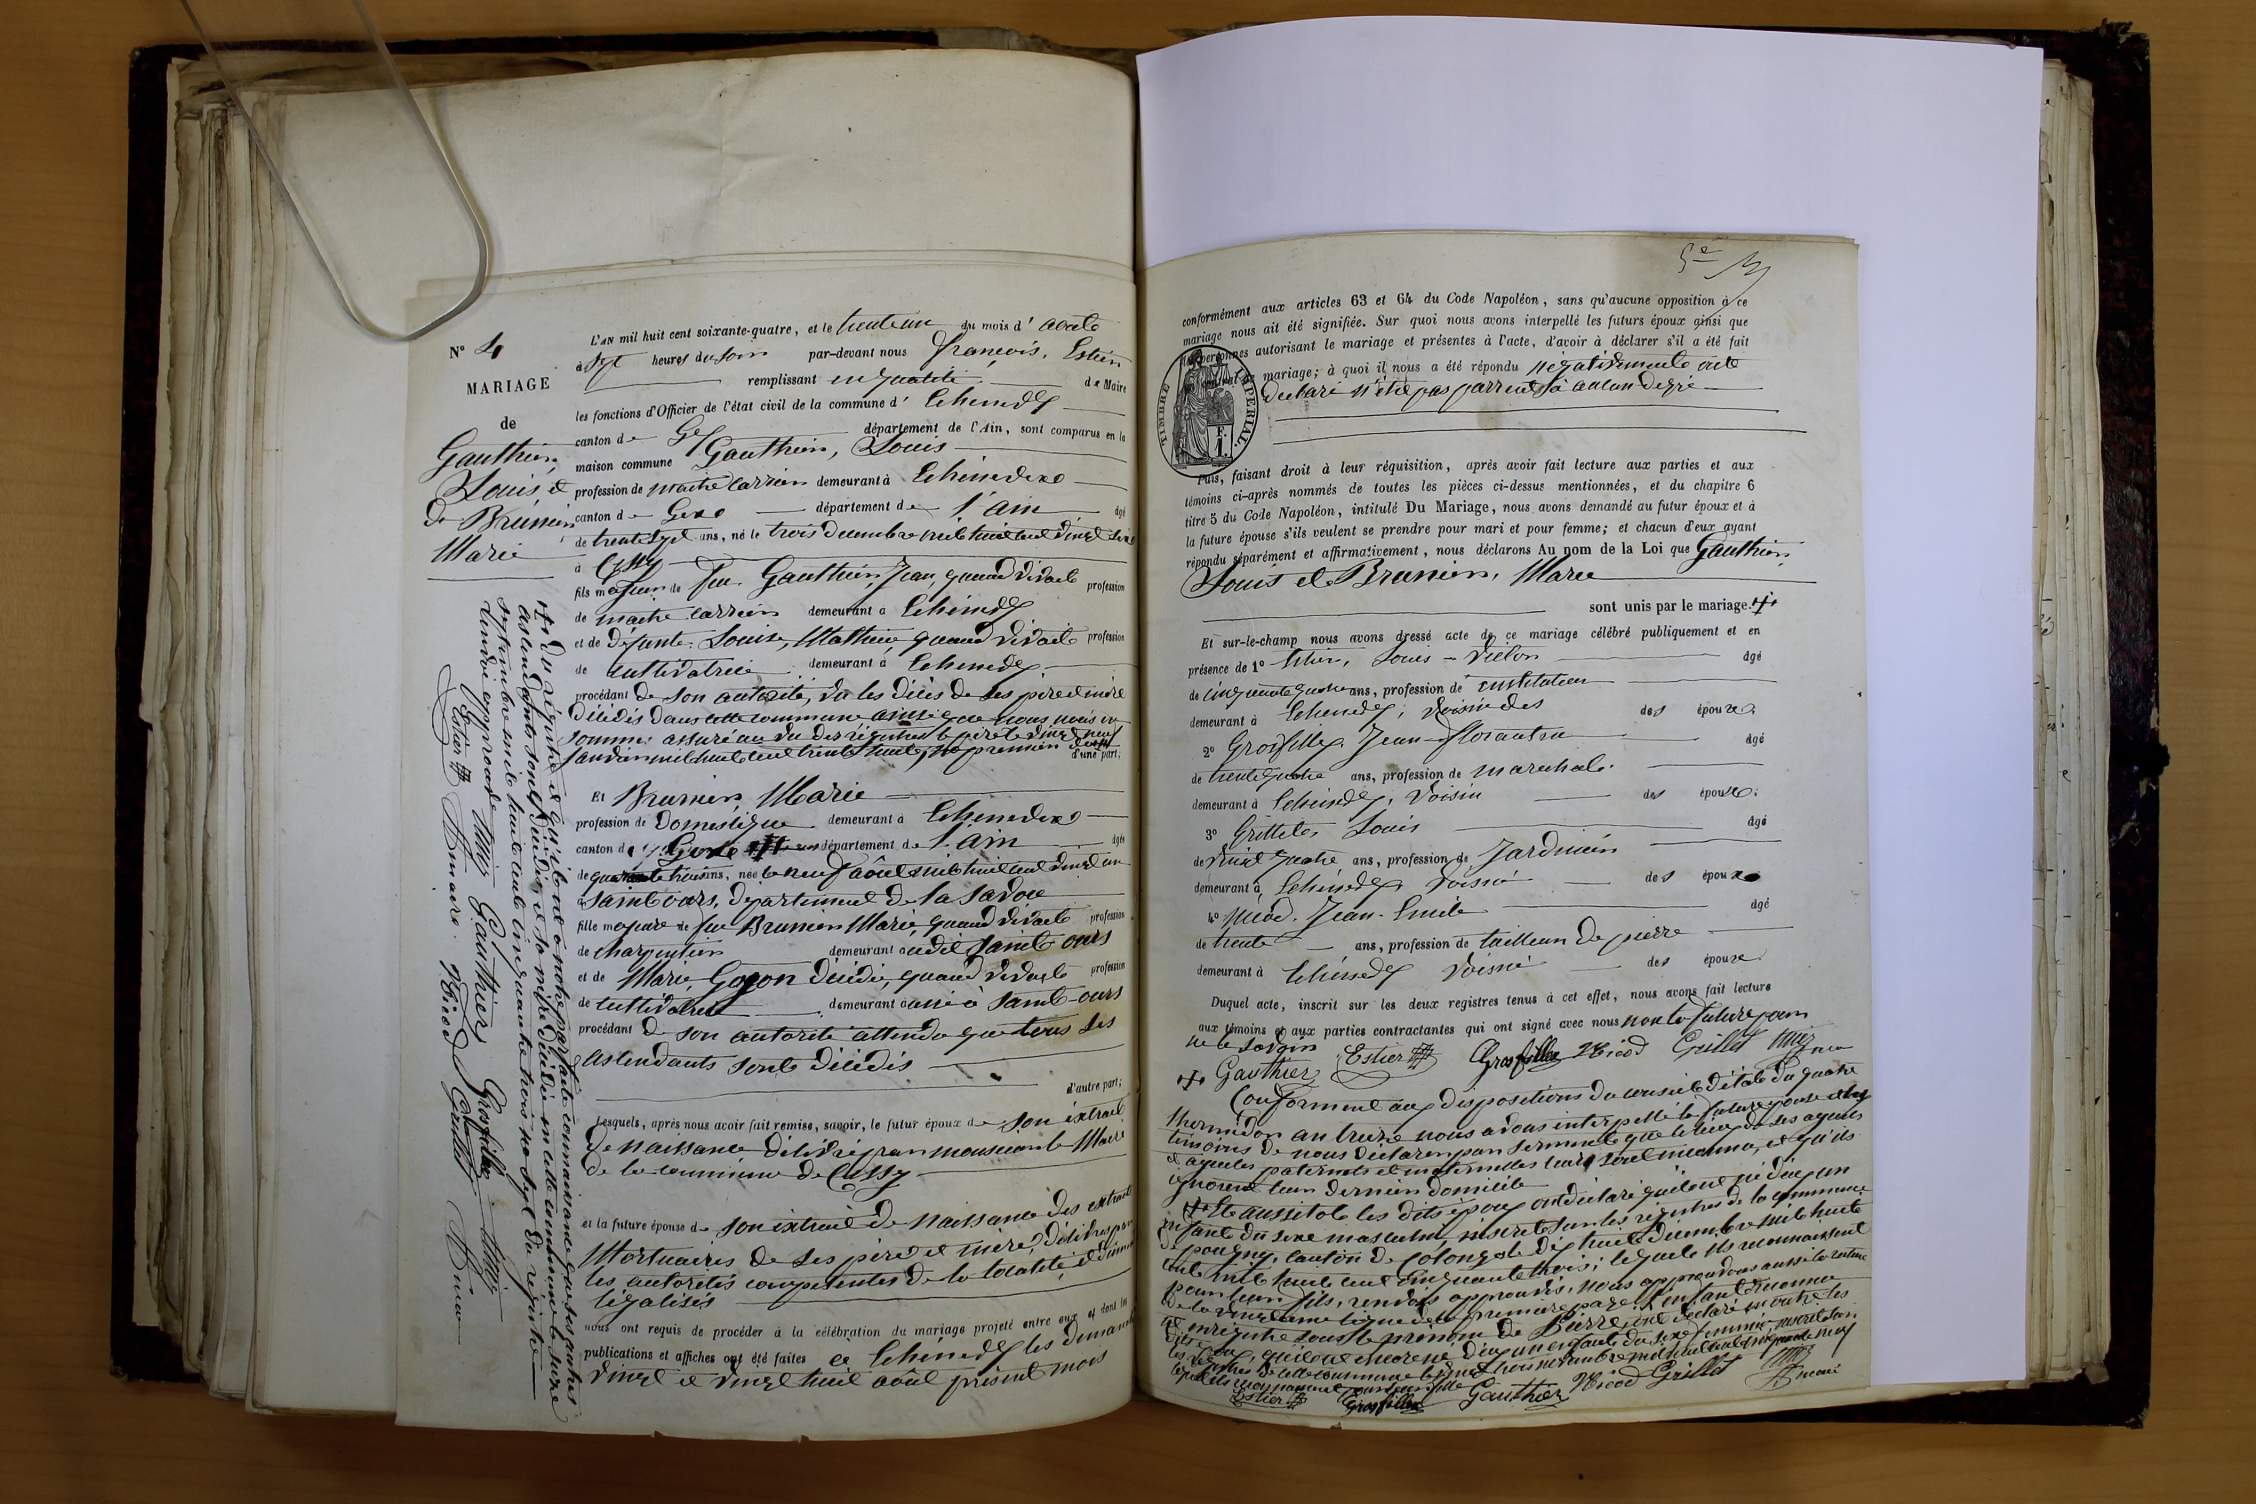 N° 4
MARIAGE
de
Gauthier,
Louis, et
de Brunier
Marie
L'AN mil huit cent soixante-quatre, et le trente un du mois d' août
à sept heures du soir par-devant nous françois, Estier
remplissant en qualité de Maire
les fonctions d'Officier de l'état civil de la commune d' Echenevex
canton de Gex département de l'Ain, sont comparus en la
maison commune Gauthier, Louis
profession de maitre carrier demeurant à Echenevex
canton de Gex département de l'ain âgé
de trente sept ans, né le trois décembre mil huit cent vingt six
à Cessy
fils majeur de feu Gauthier, Jean, quand vivait profession
de maitre carrier demeurant à Echenevex
et de défunte Louise, Mathieu, quand vivait profession
de cultivatrice demeurant à Echenevex
procédant de son autorité, vu les décès de ses père et mère
décédés dans cette commune ainsi que nous nous en
sommes assuré au vu des registres le père le vingt neuf
janvier mil huit cent trente huit, no premier
d'une part;
Et Brunier, Marie
profession de domestique demeurant à Echenevex
canton de Gex département de l'ain âgée
de quarante trois ans, née le neuf août mil huit cent vingt un
à Saint ours, département de la Savoie
fille majeure de feu Brunier Marie, quand vivait profession
de charpentier demeurant audit Saint ours
et de Marie, Goyon décédée, quand vivait profession
de cultivatrice demeurant aussi à Saint-ours
procédant de son autorité attendu que tous ses
ascendants sont décédés
d'autre part;
Lesquels, après nous avoir fait remise, savoir, le futur époux de son extrait
de naissance délivré par monsieur le Maire
de la commune de Cessy
et la future épouse de son extrait de naissance des extraits
mortuaires de ses père et mère, délivrés par
les autorités compétentes de la localité, et dûment
légalisés
nous ont requis de procéder à la célébration du mariage projeté entre eux, et dont les
publications et affiches ont été faites à Echenevex les dimanches
vingt et vingt huit août présent mois
du registre et qu'il ne à notre parfaite connaissance que ses autres
ascendants sont décédés et sa mère décédée en cette commune le seize
septembre mil huit cent cinquante trois no sept du registre
Gauthier Grosfillex
Estier maire Nicod Grillet
5e
conformément aux articles 63 et 64 du Code Napoléon, sans qu'aucune opposition à ce
mariage nous ait été signifiée. Sur quoi nous avons interpellé les futurs époux ainsi que
les personnes autorisant le mariage et présentes à l'acte, d'avoir à déclarer s'il a été fait
mariage; à quoi il nous a été répondu négativement ont
déclaré n'être pas parrents à aucun degré
TIMBRE IMPERIAL
F.
1.
Puis, faisant droit à leur réquisition, après avoir fait lecture aux parties et aux
témoins ci-après nommés de toutes les pièces ci-dessus mentionnées, et du chapitre 6
titre 5 du Code Napoléon, intitulé Du Mariage, nous avons demandé au futur époux et à
la future épouse s'ils veulent se prendre pour mari et pour femme; et chacun d'eux ayant
répondu séparément et affirmativement, nous déclarons Au nom de la Loi que Gauthier,
Louis et Brunier, Marie
sont unis par le mariage.
Et sur-le-champ nous avons dressé acte de ce mariage célébré publiquement et en
présence de 1° Estier, Louis - âgé
de cinquante quatre ans, profession de instituteur
demeurant à Echenevex, voisin des des époux.
2° Grosfillex, Jean âgé
de trente quatre ans, profession de maréchal
demeurant à Echenevex, voisin des époux.
3° Grillet, Louis âgé
de vingt quatre ans, profession de Jardinier
demeurant à Echenevex voisin des époux
4° Nicod, Jean-Emile âgé
de trente ans, profession de tailleur de pierre
demeurant à Echenevex voisin des époux
Duquel acte, inscrit sur les deux registres tenus à cet effet, nous avons fait lecture
aux témoins et aux parties contractantes qui ont signé avec nous non la future pour
ne le savoir
Gauthier Estier Grosfillex Nicod Grillet
Conforment aux dispositions du conseil d'état du quatre
thermidor an treize nous avons interpellé la future épouse et les
témoins de nous déclarer par serment que le lieu de ses ayeuls
et ayeules paternels et maternelles leur sont inconnu, et qu'ils
ignorent leur dernier domicile
Et aussitôt les dits époux ont déclaré qu'il est né d'eux un
enfant du sexe masculin, inscrit sur les registres de la commune
de pougny, canton de Colonges le dix huit décembre mil huit
cent mil huit cent cinquante trois; lequel ils reconnaissent
pour leur fils, renvois approuvés, nous approuvons aussi la rature
de la vingtième ligne de la première page. L'enfant reconnu
est enregistré sous le prénom de Pierre, ont déclaré en outre les
dits époux, qu'il est encore né d'eux un enfant du sexe féminin, inscrit sur
les registres de cette commune
lequel ils reconnaissent pour leur fille
Estier Grosfillex Gauthier Nicod Grillet maire